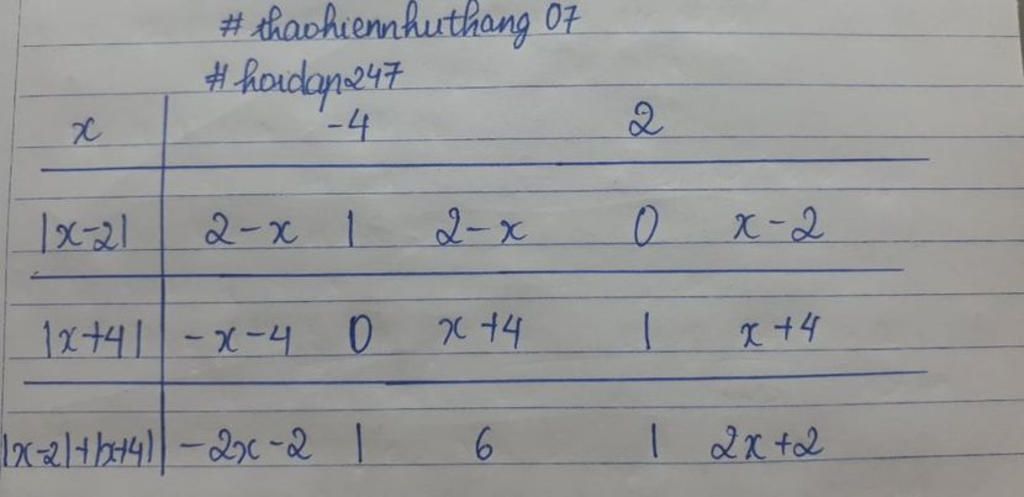 # thaohiennhuthang 07
# hoidap247
x -4 2
|x-2| 2-x | 2-x 0 x-2
|x+4| -x-4 0 x+4 | x+4
|x-2|+|x+4| -2x-2 | 6 | 2x+2